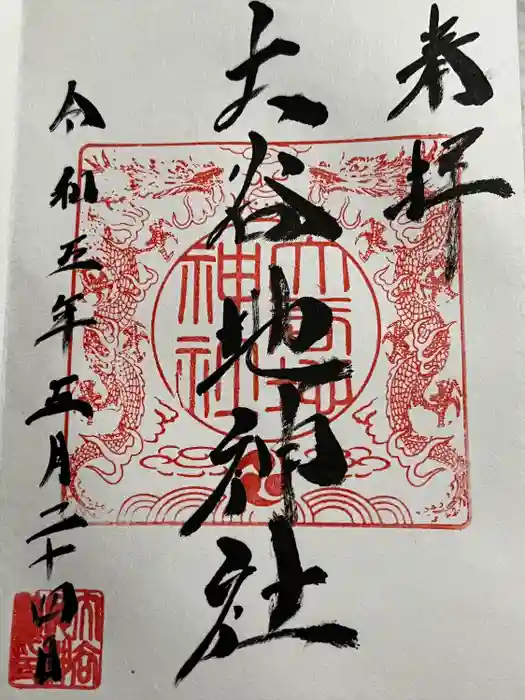 奉拝
大谷地神社
令和五年五月二十四日
大谷地神社